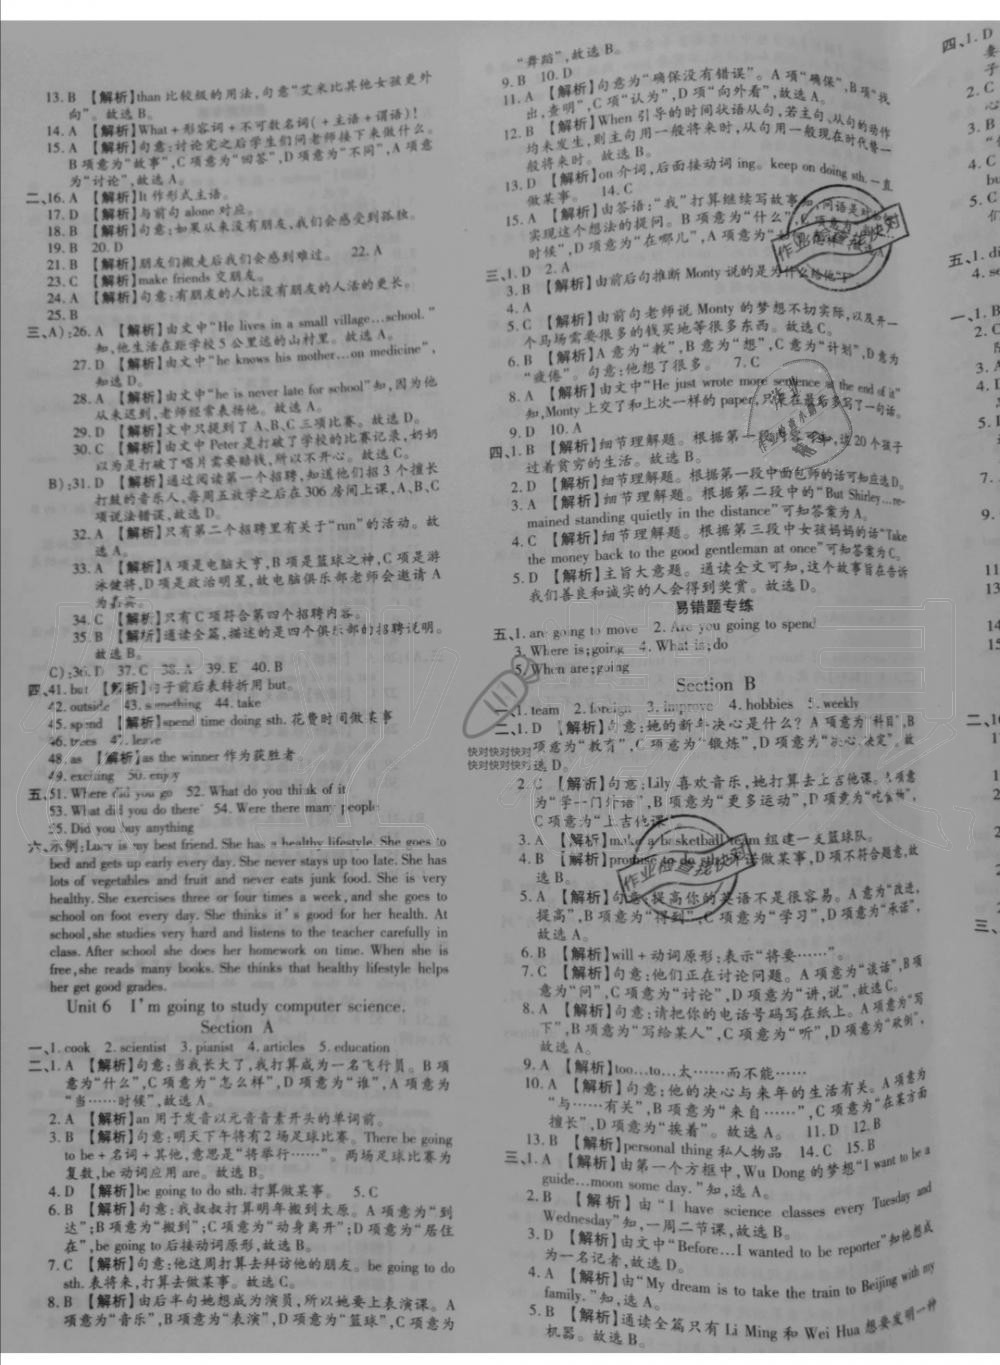 13. B 【解析】than 比较级的用法,句意“艾米比其他女孩更外
向”。故选 B。
14. A 【解析】What+形容词+不可数名词(+主语+谓语)!
15. A 【解析】句意:讨论完之后学生们问老师接下来做什么。
B 项意为“故事”,C 项意为“回答”,D 项意为“不同”,A 项意
为“讨论”,故选 A。
二、16. A 【解析】It 作形式主语。
17. D 【解析】与前句 alone 对应。
18. B 【解析】句意:如果从来没有朋友,我们会感受到孤独。
19. B 20. D
21. B 【解析】朋友们搬走后我们会感到难过。 22. A
23. C 【解析】make friends 交朋友。
24. A 【解析】句意:有朋友的人比没有朋友的人活的更长。
25. B
三、A):26. A 【解析】由文中“He lives in a small village…school.”
知,他生活在距学校 5 公里远的山村里。故选 A。
27. D 【解析】由文中“he knows his mother…on medicine”,
知选 D。
28. A 【解析】由文中“he is never late for school”知,因为他
从未迟到,老师经常表扬他。故选 A。
29. D 【解析】文中只提到了 A、B、C 三项比赛。故选 D。
30. C 【解析】由文中 Peter 是打破了学校的比赛记录,奶奶
以为是打破了唱片需要赔钱,所以不开心。故选 C。
B):31. D 【解析】通过阅读第一个招聘,知道他们招 3 个擅长
打鼓的音乐人,每周五放学之后在 306 房间上课,A、B、C
项说法错误,故选 D。
32. A 【解析】只有第二个招聘里有关于“run”的活动。故
选 A。
33. A 【解析】A 项是电脑大亨,B 项是篮球之神,C 项是游
泳健将,D 项是政治明星,故电脑俱乐部老师会邀请 A
为嘉宾。
34. C 【解析】只有 C 项符合第四个招聘内容。
35. B 【解析】通读全篇,描述的是四个俱乐部的招聘说明。
故选 B。
C):36. D 37. C 38. A 39. E 40. B
四、41. but 【解析】句子前后表转折用 but。
42. outside 43. something 44. take
45. spend 【解析】spend time doing sth. 花费时间做某事
46. trees 47. leave
48. as 【解析】as the winner 作为获胜者
49. exciting 50. enjoy
五、51. Where did you go 52. What do you think of it
53. What did you do there 54. Were there many people
55. Did you buy anything
六、示例:Lucy is my best friend. She has a healthy lifestyle. She goes to
bed and gets up early every day. She never stays up too late. She has
lots of vegetables and fruit and never eats junk food. She is very
healthy. She exercises three or four times a week, and she goes to
school on foot every day. She thinks it's good for her health. At
school, she studies very hard and listens to the teacher carefully in
class. After school she does her homework on time. When she is
free, she reads many books. She thinks that healthy lifestyle helps
her get good grades.
Unit 6 I'm going to study computer science.
Section A
一、1. cook 2. scientist 3. pianist 4. articles 5. education
二、1. A 【解析】句意:当我长大了,我打算成为一名飞行员。B 项
意为“什么”,C 项意为“怎么样”,D 项意为“谁”,A 项意为
“当……时候”,故选 A。
2. A 【解析】an 用于发音以元音音素开头的单词前。
3. B 【解析】句意:明天下午将有 2 场足球比赛。There be going
to be+名词+其他,意思是“将举行……”。两场足球比赛为
复数,be 动词应用 are。故选 B。
4. D 【解析】be going to do sth. 打算做某事。 5. C
6. B 【解析】句意:我叔叔打算明年搬到太原。A 项意为“到
达”;B 项意为“搬到”;C 项意为“动身离开”;D 项意为“居住
在”,be going to 后接动词原形,故选 B。
7. C 【解析】句意:他这周打算去拜访他的朋友。be going to do
sth. 表将来,打算去做某事。故选 C。
8. B 【解析】由后半句她想成为演员,所以她要上表演课。A
项意为“音乐”,B 项意为“表演”,D 项意为“篮球”,C 项意为
“舞蹈”,故选 B。
9. B 10. D
11. A 【解析】句意为“确保没有错误”。A 项“确保”,B 项“找
出,查明”,C 项“认为”,D 项“向外看”,故选 A。
12. B 【解析】When 引导的时间状语从句,若主句、从句的动作
均未发生,则主句用一般将来时,从句用一般现在时代替一
般将来时。故选 B。
13. D 【解析】on 介词,后面接动词 ing。keep on doing sth. 一直
做某事。 14. C
15. A 【解析】由答语:“我”打算继续写故事
实现这个想法的提问。B 项意为“什么”
时候”,D 项意为“在哪儿”,A 项意为
三、1. D 2. A
3. B 【解析】由前后句推断 Monty 说的是为什么给他“F”
4. A
5. C 【解析】由前句老师说 Monty 的梦想不切实际,以及开一
个马场需要很多的钱买地等很多东西。故选 C。
6. B 【解析】A 意为“教”,B 意为“想”,C 意为“计划”,D 意为
“疲倦”。句意:他想了很多。 7. C
8. A 【解析】由文中“He just wrote more sentence at the end of it”
知,Monty 上交了和上次一样的 paper,只是在最后多写了一句话。
9. D 10. A
四、1. B 【解析】细节理解题。根据第一段内容可知,这 20 个孩子
过着贫穷的生活。故选 B。
2. D 【解析】细节理解题。根据第一段中面包师的话可知应选 D。
3. A 【解析】细节理解题。根据第二段中的“But Shirley…re-
mained standing quietly in the distance”可知答案为 A。
4. C 【解析】细节理解题。根据第三段中女孩妈妈的话“Take
the money back to the good gentleman at once”可知答案为 C。
5. D 【解析】主旨大意题。通读全文可知,这个故事旨在告诉
我们善良和诚实的人会得到奖赏。故选 D。
易错题专练
五、1. are going to move 2. Are you going to spend
3. Where is;going 4. What is;do
5. When are;going
Section B
一、1. team 2. foreign 3. improve 4. hobbies 5. weekly
二、1. D 【解析】句意:她的新年决心是什么?A 项意为“科目”,B
项意为“教育”,C 项意为“锻炼”,D 项意为“决心,决定”。故
选 D。
快对快对快对
快对快对快对
2. C 【解析】句意:Lily 喜欢音乐,她打算去上吉他课。A 项意
为“学一门外语”,B 项意为“更多运动”,D 项意为“吃食物”,
C 项意为“上吉他课”
3. A 【解析】make a basketball team 组建一支篮球队。
4. B 【解析】promise to do sth. 承诺做某事,D 项不符合题意,故
选 B。
5. A 【解析】句意:提高你的英语不是很容易。A 意为“改进,
提高”,B 项意为“得到”,C 项意为“学习”,D 项意为“承诺”,
故选 A。
6. B 【解析】will+动词原形:表示“将要……”。
7. C 【解析】句意:他们正在讨论问题。A 项意为“谈话”,B 项
意为“问”,C 项意为“讨论”,D 项意为“讲,说”,故选 C。
8. A 【解析】句意:请把你的电话号码写在纸上。A 项意为“写
下”,B 项意为“写给某人”,C 项意为“听”,D 项意为“砍倒”,
故选 A。
9. A 【解析】too…to…太……而不能……
10. A 【解析】句意:他的决心与来年的生活有关。A 项意为
“与……有关”,B 项意为“来自……”,C 项意为“在某方面
擅长”,D 项意为“挨着”。故选 A。 11. D 12. B
13. B 【解析】personal thing 私人物品 14. C 15. B
三、1. A 【解析】由第一个方框中,Wu Dong 的梦想“I want to be a
guide…moon some day.”知,选 A。
2. B 【解析】由“I have science classes every Tuesday and
Wednesday”知,一周二节课,故选 B。
3. D 【解析】由文中“Before…I wanted to be reporter”知他想成
为一名记者,故选 D。
4. A 【解析】由“My dream is to take the train to Beijing with my
family.”知,选 A。
5. B 【解析】通读全篇只有 Li Ming 和 Wei Hua 想要发明一种
机器。故选 B。
作业检查找快对
作业检查找快对
四、1. D
要
子
2. C
心
3. B
4. C
5. C
五、1. di
4. so
一、1. B
2. C
3. A
4. D
5. I
7.
9.
11
14
15
二、10
三、